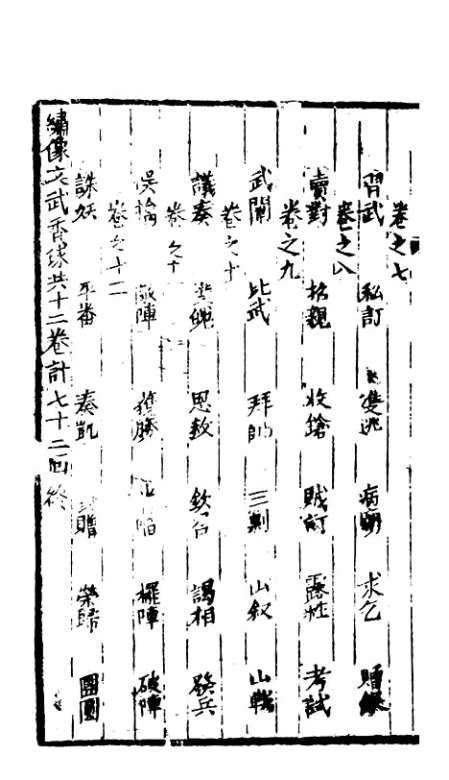 卷之七
習武 私訂 雙逃 病 求乞 贈
卷之八
賣對 招親 收鎗 賊訂 露性 考試
卷之九
武闈 比武 拜帥 三剿 山叙 山戰
卷之十
議奏 思救 欽召 謁相 發兵
卷之十
吳 陣 獲勝 擺陣 破陣
卷之十二
誅妖 平番 奏凱 贈 榮歸 團圓
繡像文武香球共十二卷計七十二回終